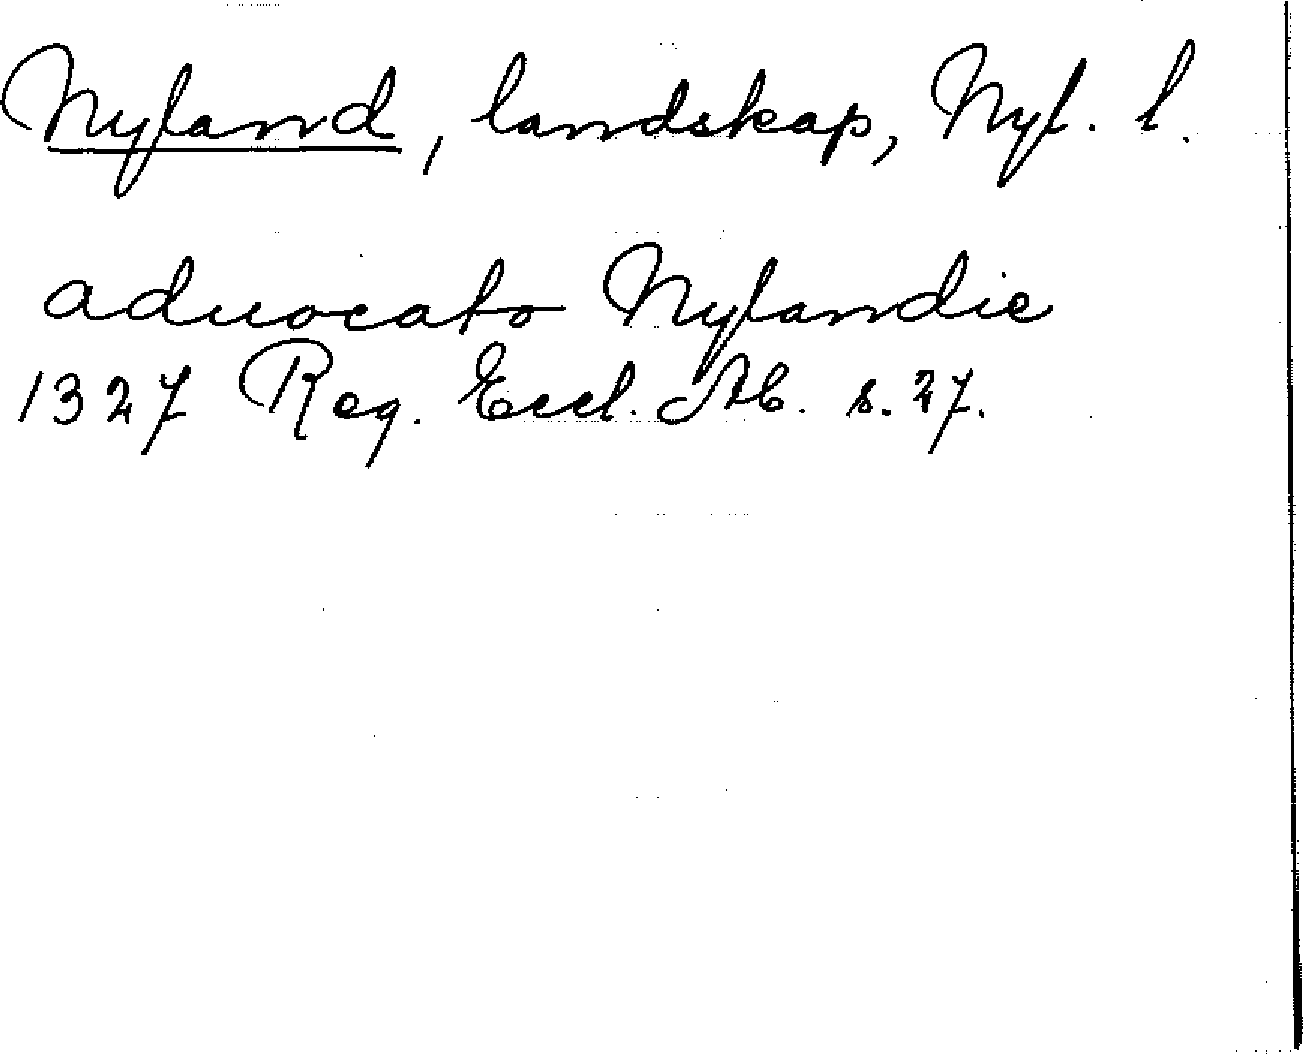 Nyland, landskap, Nyl. l.
aduocato Nylandie
1327 Reg. Eccl. Ab. s. 27.